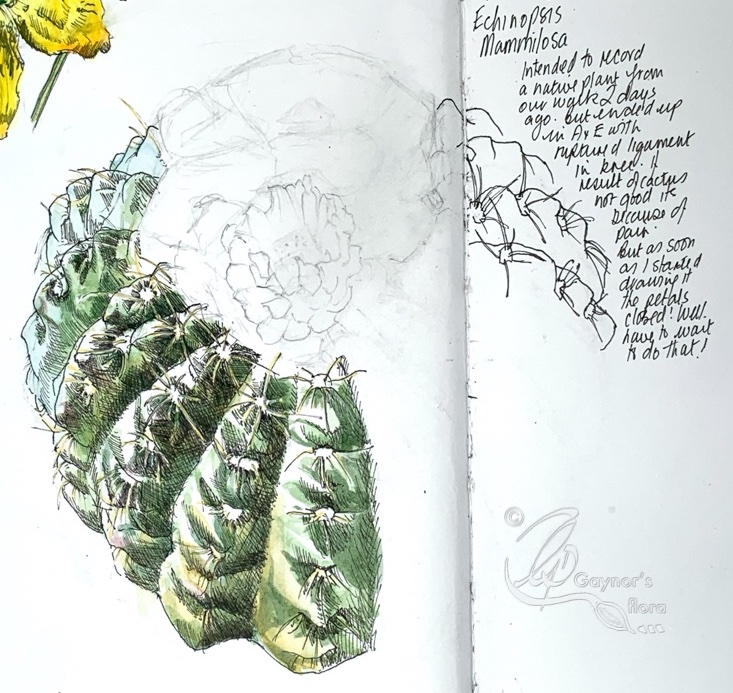 Echinopsis
Mammilosa
Intended to record
a native plant from
our walk 2 days
ago. but ended up
in A&E with
ruptured ligament
in knee. If
result of cactus
not good it's
because of
pain.
But as soon
as I started
drawing it
the petals
closed! Well
have to wait
to do that!
©
Gaynor's
flora